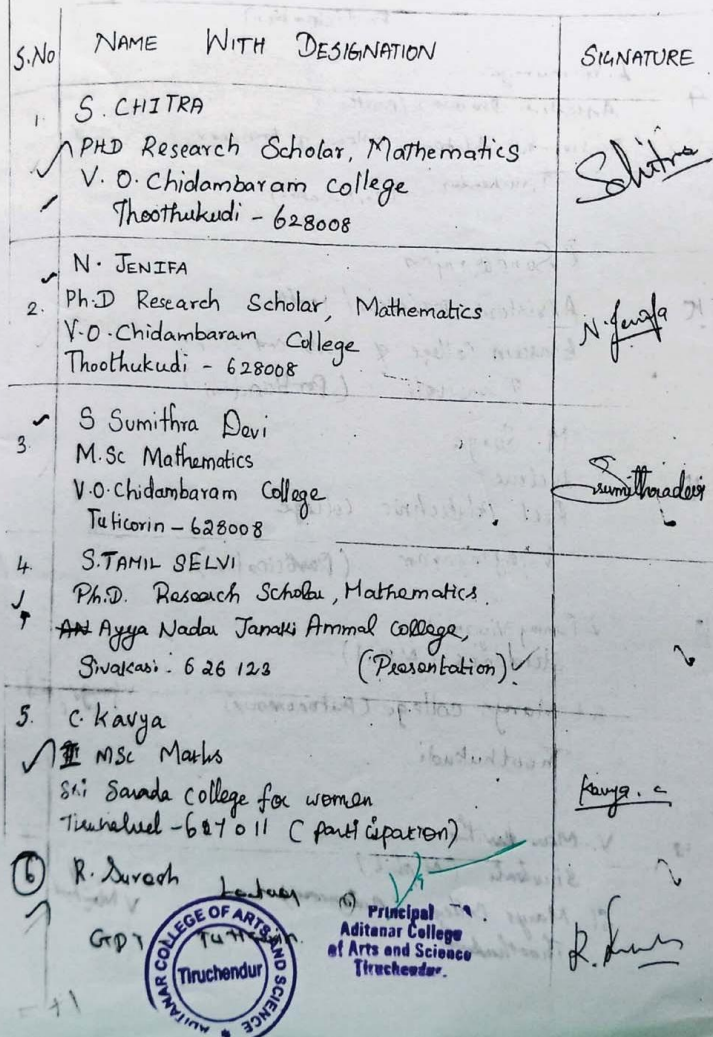 S.No NAME WITH DESIGNATION SIGNATURE
1. S. CHITRA
PHD Research Scholar, Mathematics
V. O. Chidambaram college
Thoothukudi - 628008
Schitra
N. JENIFA
2. Ph.D Research Scholar, Mathematics
V.O. Chidambaram College
Thoothukudi - 628008
N. Jenifa
3. S Sumithra Devi
M.Sc Mathematics
V.O. Chidambaram College
Tuticorin - 628008
Sumithradevi
4. S. TAMIL SELVI
Ph.D. Research Scholar, Mathematics.
Ayya Nadar Janaki Ammal college,
Sivakasi - 626 123 (Presentation)
5. C. Kavya
II MSc Maths
Sri Sarada college for women
Tirunelveli - 627011 (participation)
Kavya. C
6 R. Suresh Lecturer
GPT Tuticorin.
ADITANAR COLLEGE OF ARTS AND SCIENCE
Tiruchendur
Principal
Aditanar College
of Arts and Science
Tiruchendur.